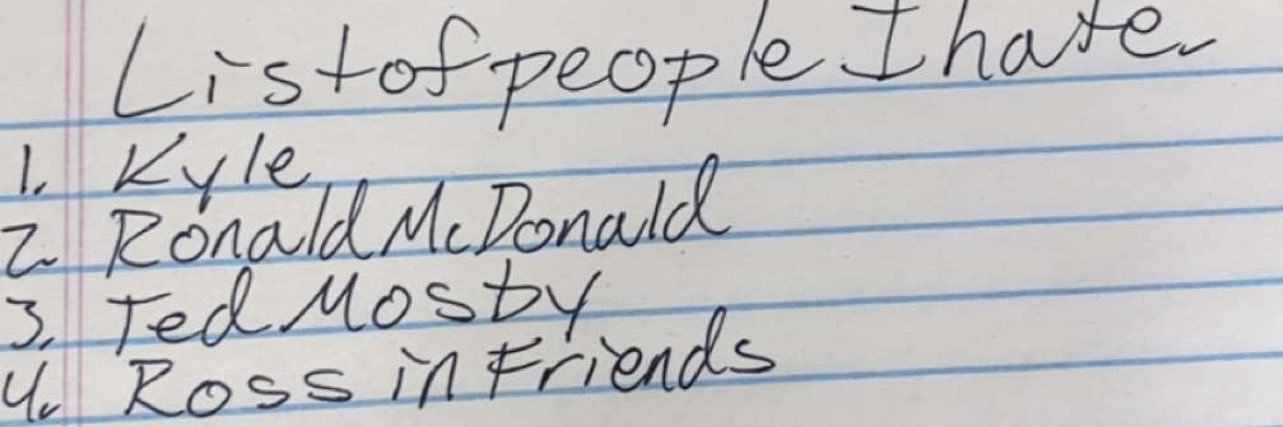 List of people I hate.
1. Kyle
2. Ronald McDonald
3. Ted Mosby
4. Ross in Friends